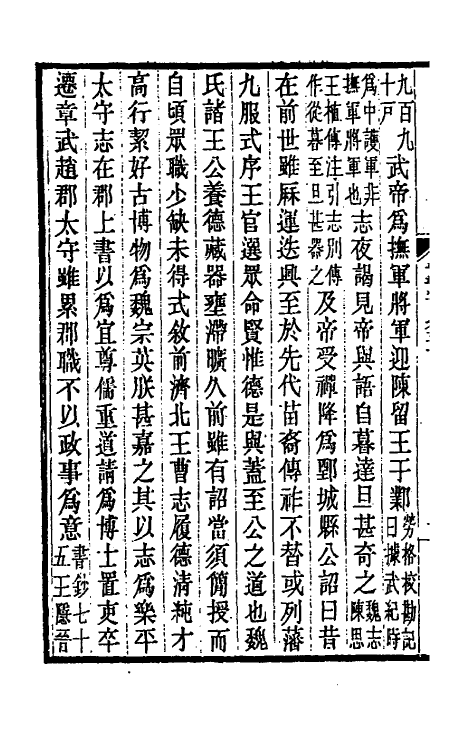 九百九十戶武帝爲撫軍將軍迎陳留王于鄴勞格校勘記曰據武紀時
爲中護軍非撫軍將軍也志夜謁見帝與語自暮達旦甚奇之魏志陳思
王植傳注引志別傳作從暮至旦甚器之及帝受禪降爲鄄城縣公詔曰昔
在前世雖厤運迭興至於先代苗裔傳祚不替或列藩
九服式序王官選眾命賢惟德是與蓋至公之道也魏
氏諸王公養德藏器壅滯曠久前雖有詔當須簡授而
自頃眾職少缺未得式敘前濟北王曹志履德清純才
高行絜好古博物爲魏宗英朕甚嘉之其以志爲樂平
太守志在郡上書以爲宜尊儒重道請爲博士置吏卒
遷章武趙郡太守雖累郡職不以政事爲意書鈔七十五王隱晉